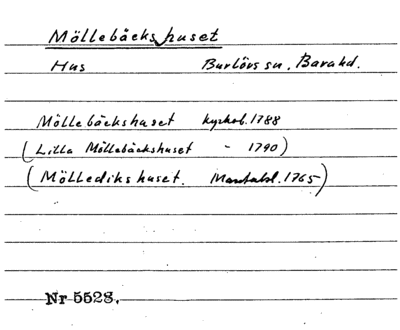 Möllebäckshuset
Hus Burlövs sn. Bara hd.
Möllebäckshuset kyrkob. 1788
(Lilla Möllebäckshuset - 1790)
(Mölledikshuset. Mantalsl. 1765)
Nr 5528.